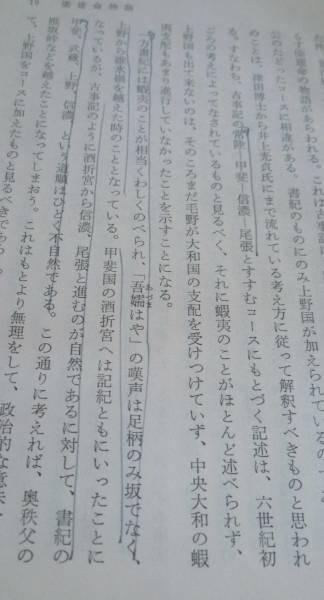 らず倭建命の物語があらわれる。これは古事記
公のたどったコースに相違がある。書紀のものにのみ上野国が加えられているので
のことは、津田博士から井上光貞氏にまで流れている考え方に従って解釈すべきものと思われ
る。すなわち、古事記の常陸―甲斐―信濃、尾張とすすむコースにもとづく記述は、六世紀初
ごろの考えによってなされているものと見るべく、それに蝦夷のことがほとんど述べられず、
上野国も出て来ないのは、そのころまだ毛野が大和国の支配を受けつけていず、中央大和の蝦
夷支配もあまり進行していなかったことを示すことになる。
一方書紀には蝦夷のことが相当くわしくのべられ、「吾嬬はや」の嘆声は足柄のみ坂でなく、
あづま
上野から碓氷峠を越えた時のこととなっている。甲斐国の酒折宮へは記紀ともにいったことに
なっているが、古事記のように酒折宮から信濃、尾張と進むのが自然であるに対して、書紀の
甲斐、武蔵、上野、信濃、という道順はひどく不自然である。この通りに考えれば、奥秩父の
雁坂峠などを越えたことになってしまおう。これはもとより無理をして、政治的な意味
て、上野国をコースに加えたものと見るべきであろう。
19